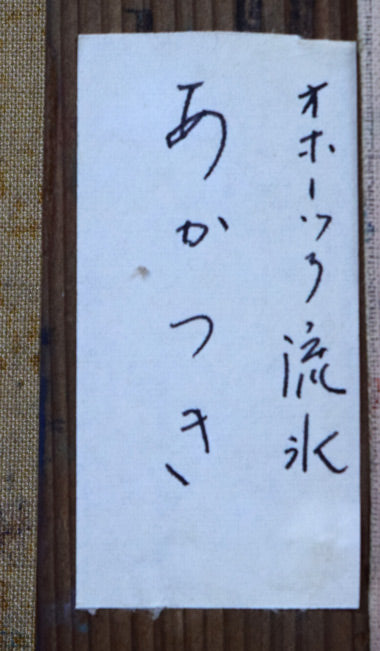 オホーツク流氷
あかつき